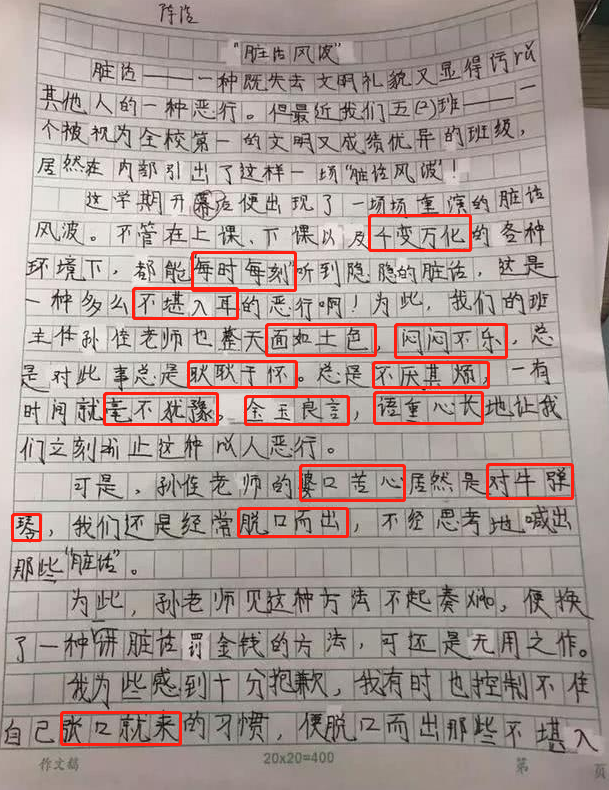 陈浩
"脏话风波"
脏话———一种既失去文明礼貌又显得污rǔ
其他人的一种恶行。但最近我们五(2)班———一
个被视为全校第一的文明又成绩优异的班级，
居然在内部引出了这样一场"脏话风波"！
这学期开幕后便出现了一场场重演的脏话
风波。不管在上课、下课以及千变万化的各种
环境下，都能"每时每刻"听到隐隐的脏话，这是
一种多么不堪入耳的恶行啊！为此，我们的班
主任孙佳老师也整天面如土色，闷闷不乐，总
是对此事总是耿耿于怀。总是不厌其烦，一有
时间就毫不犹豫，金玉良言，语重心长地让我
们立刻停止这种以人恶行。
可是，孙佳老师的婆口苦心居然是对牛弹
琴，我们还是经常脱口而出，不经思考地喊出
那些"脏话"。
为此，孙老师见这种方法不起奏xiào，便换
了一种"讲脏话罚金钱的方法，可还是无用之作。
我为些感到十分抱歉，我有时也控制不住
自己张口就来的习惯，便脱口而出那些不堪入
作文稿 20x20=400 第 页